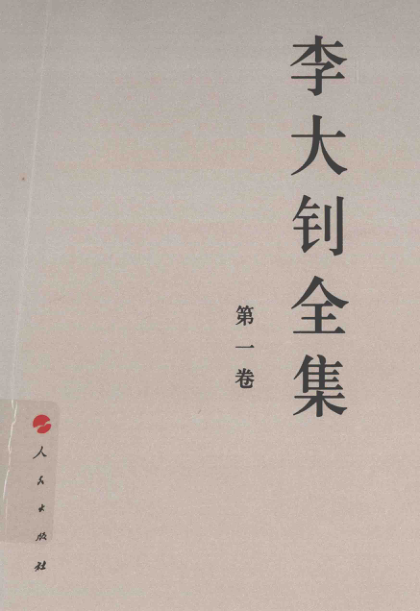 李大钊全集
第一卷
人民出版社